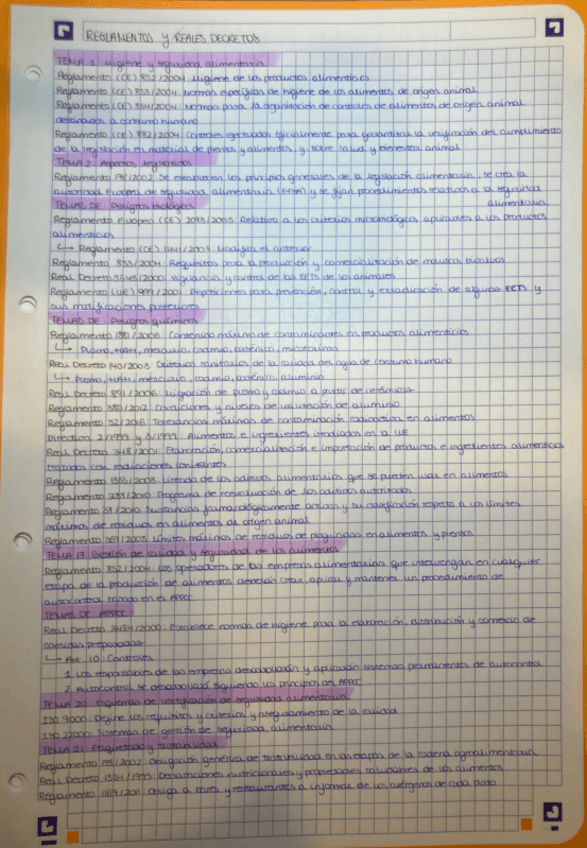 REGLAMENTOS y REALES DECRETOS
TEMA 1 Higiene y seguridad alimentaria
Reglamento (CE) 852/2004 Higiene de los productos alimenticios
Reglamento (CE) 853/2004. Normas específicas de higiene de los alimentos de origen animal
Reglamento (CE) 854/2004: Normas para la organización de controles de alimentos de origen animal
destinados a consumo humano
Reglamento (CE) 882/2004: Controles efectuados oficialmente para garantizar la verificación del cumplimiento
de la legislación en material de piensos y alimentos, y, sobre salud y bienestar animal
TEMA 2 Aspectos legislativos
Reglamento 178/2002: Se establecen los principios generales de la legislación alimentaria, se crea la
autoridad Europea de seguridad alimentaria (EFSA) y se fijan procedimientos relativos a la seguridad
alimentaria
TEMAS DE Peligros biológicos
Reglamento europeo (CE) 2073/2005. Relativo a los criterios microbiológicos aplicables a los productos
alimenticios
↳ Reglamento (CE) 1441/2007. Modifica el anterior
Reglamento 853/2004: Requisitos para la producción y comercialización de moluscos bivalvos
Real Decreto 3454/2000: Vigilancia y control de las EETs de los animales
Reglamento (UE) 999/2001: Disposiciones para prevención, control y erradicación de algunas EETs y
sus modificaciones posteriores
TEMAS DE Peligros químicos
Reglamento 1881/2006: Contenido máximo de contaminantes en productos alimenticios
↳ Plomo, HAH, mercurio, cadmio, arsénico, micotoxinas
Real Decreto 140/2003: Criterios sanitarios de la calidad del agua de consumo humano
↳ Plomo, HAH, mercurio, cadmio, arsénico, aluminio
Real Decreto 891/2006: Migración de plomo y cadmio a partir de cerámicas
Reglamento 380/2012: Condiciones y niveles de utilización de aluminio
Reglamento 52/2016 Tolerancias máximas de contaminación radioactiva en alimentos
Directiva 2/1999 y 3/1999: Alimentos e ingredientes irradiados en la UE
Real Decreto 348/2001: Elaboración, comercialización e importación de productos e ingredientes alimenticios
tratados con radiaciones ionizantes
Reglamento 1333/2008: Listado de los aditivos alimentarios que se pueden usar en alimentos
Reglamento 257/2010: Programa de reevaluación de los aditivos autorizados
Reglamento 37/2010 Sustancias farmacológicamente activas y su clasificación respecto a los límites
máximos de residuos en alimentos de origen animal
Reglamento 369/2005 Límites máximos de residuos de plaguicidas en alimentos y piensos
TEMA 17 Gestión de calidad y seguridad de los alimentos
Reglamento 852/2004: Los operadores de las empresas alimentarias que intervengan en cualquier
etapa de la producción de alimentos deberán crear, aplicar y mantener un procedimiento de
autocontrol basado en el APPCC
TEMAS DE APPCC
Real Decreto 3484/2000: Establece normas de higiene para la elaboración, distribución y comercio de
comidas preparadas
↳ Art. 10: Controles
1. Los responsables de las empresas desarrollarán y aplicarán sistemas permanentes de autocontrol
2. Autocontrol se desarrollará siguiendo los principios del APPCC
TEMA 20: Esquemas de certificación de seguridad alimentaria
ISO 9000: Define los requisitos y criterios y aseguramiento de la calidad
ISO 22000: Sistemas de gestión de seguridad alimentaria
TEMA 21: Etiquetado y trazabilidad
Reglamento 178/2002: Obligación genérica de trazabilidad en las etapas de la cadena agroalimentaria
Real Decreto 1334/1999: Declaraciones nutricionales y propiedades saludables de los alimentos
Reglamento 1169/2011: Obliga a bares y restaurantes a informar de los alérgenos de cada plato